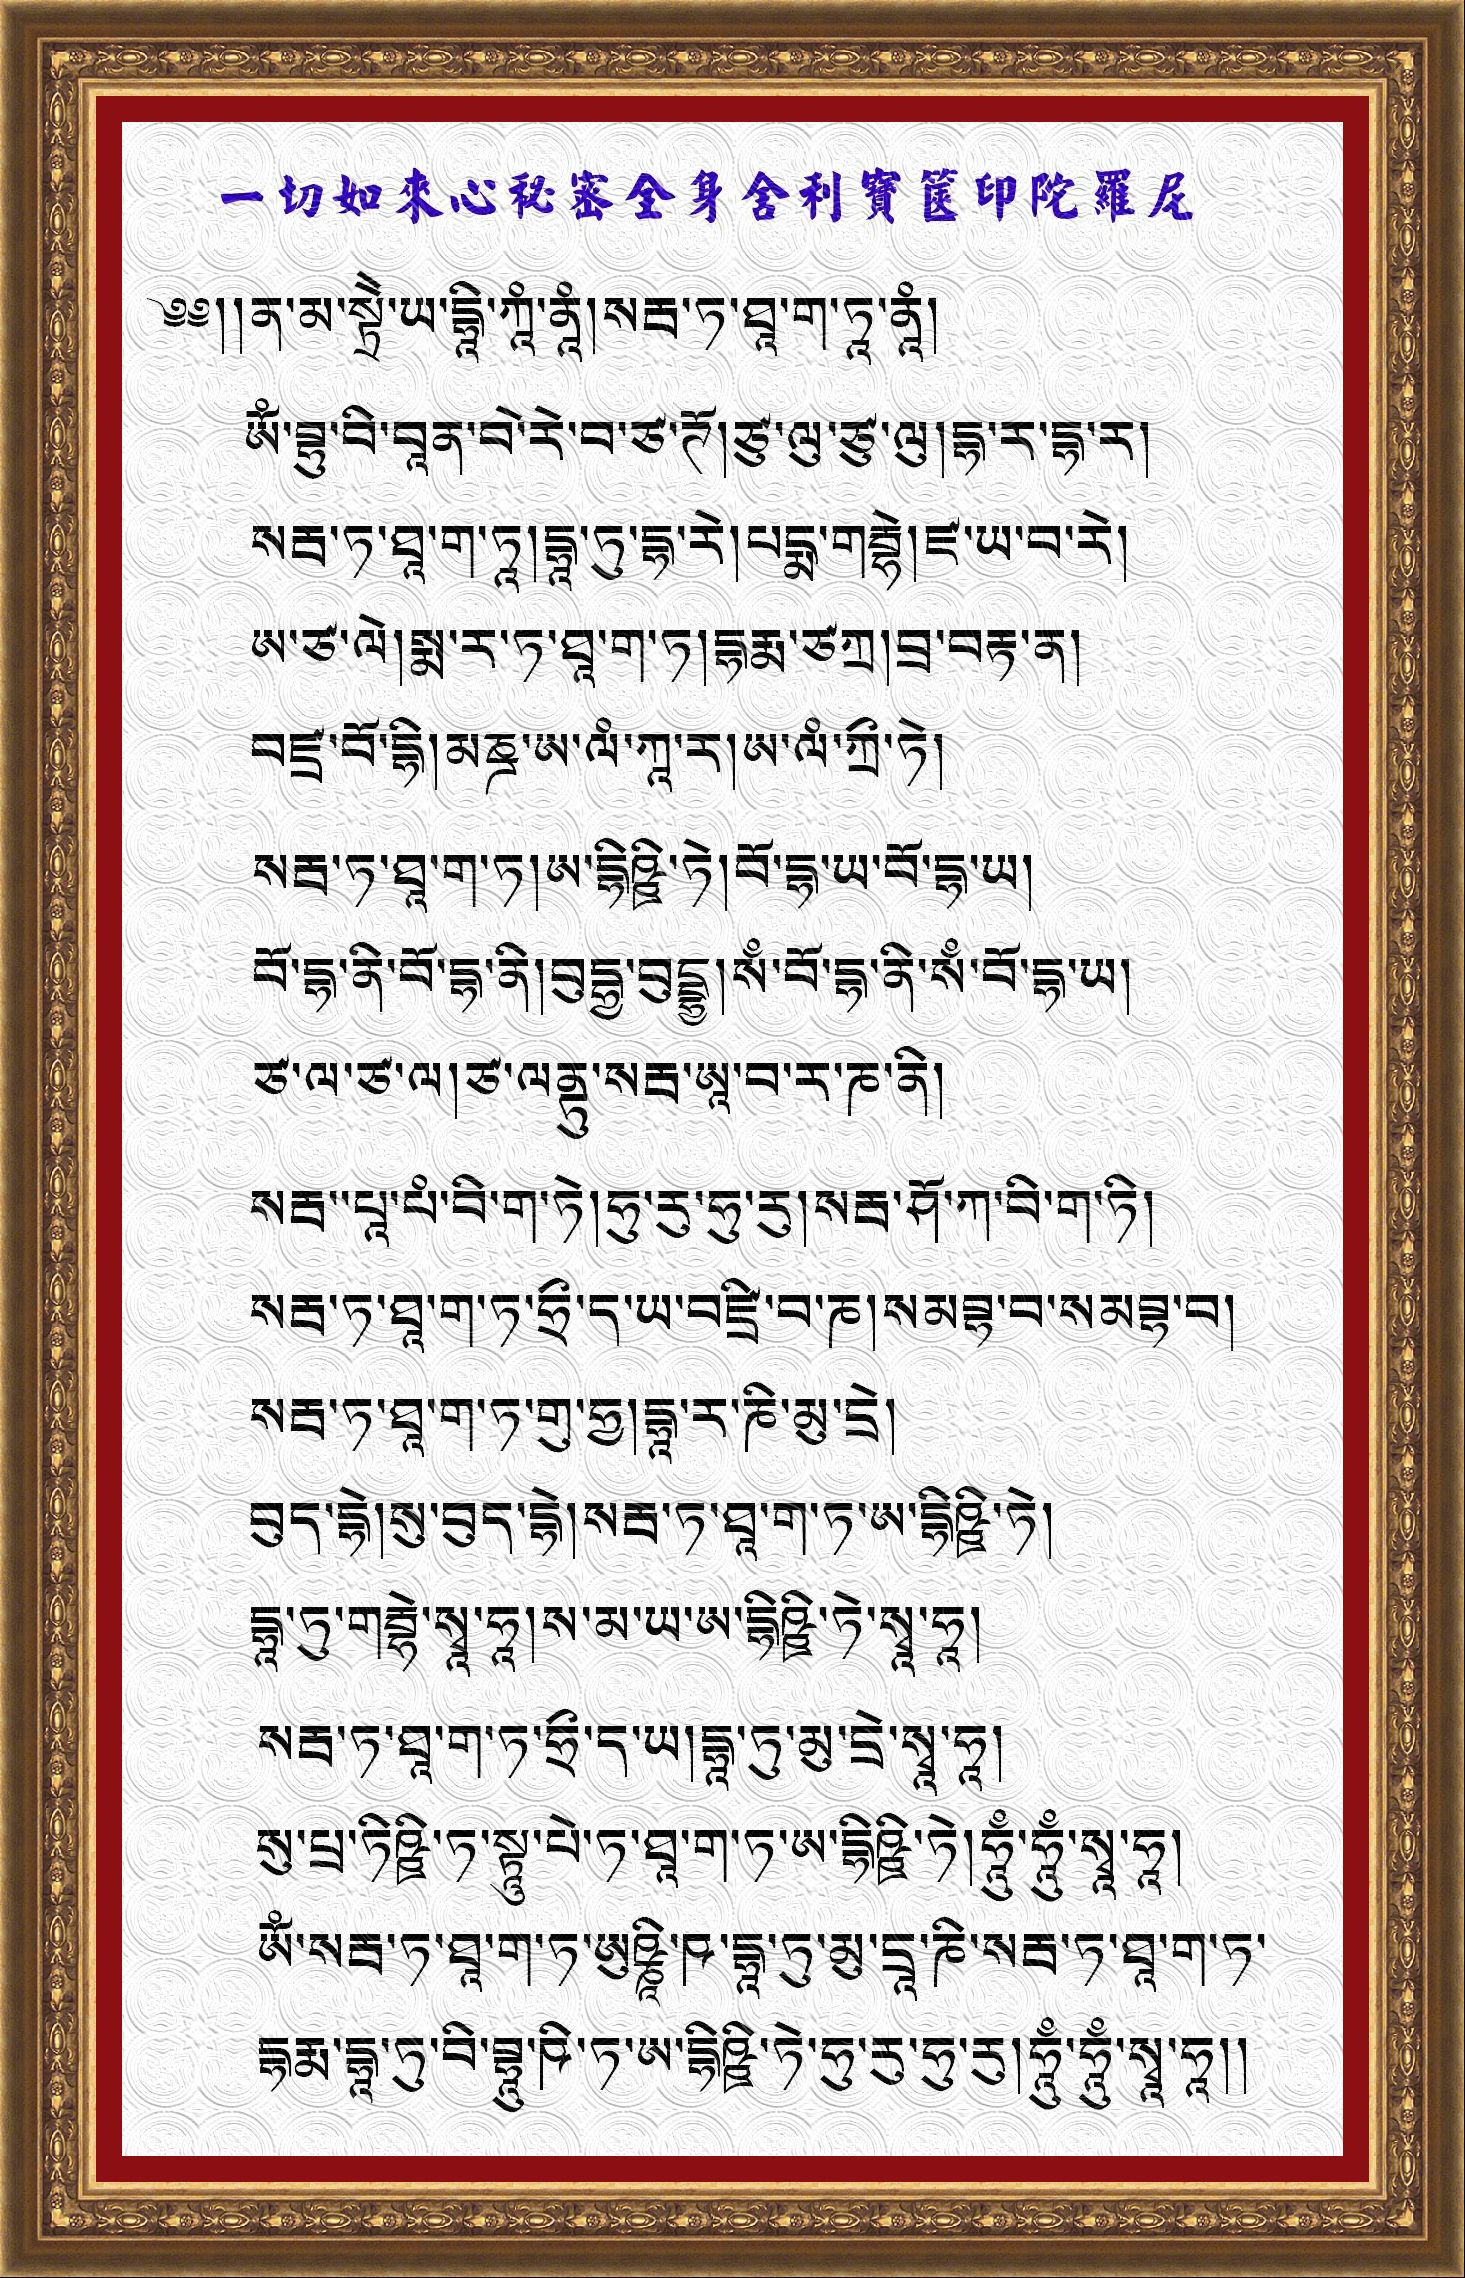 一切如來心秘密全身舍利寶篋印陀羅尼
༄༅།།ན་མ་སྟྲེ་ཡ་དྷྭི་ཀཱཾ་ནཱཾ།སརྦ་ཏ་ཐཱ་ག་ཏཱ་ནཱཾ།
ཨོཾ་བྷུ་བི་བཱན་བེ་རེ་བ་ཙ་ཊོ།ཙུ་ལུ་ཙུ་ལུ།དྷ་ར་དྷ་ར།
སརྦ་ཏ་ཐཱ་ག་ཏཱ།དྷཱ་ཏུ་དྷ་རེ།པདྨ་གརྦྷེ།ཛ་ཡ་བ་རེ།
ཨ་ཙ་ལེ།སྨ་ར་ཏ་ཐཱ་ག་ཏ།དྷརྨ་ཙཀྲ།པྲ་བརྟ་ན།
བཛྲ་བོ་དྷི།མཎྜ་ཨ་ལཾ་ཀཱ་ར།ཨ་ལཾ་ཀྲྀ་ཏེ།
སརྦ་ཏ་ཐཱ་ག་ཏ།ཨ་དྷིཥྛི་ཏེ།བོ་དྷ་ཡ་བོ་དྷ་ཡ།
བོ་དྷ་ནི་བོ་དྷ་ནི།བུདྷྱ་བུདྡྷྱ།སཾ་བོ་དྷ་ནི་སཾ་བོ་དྷ་ཡ།
ཙ་ལ་ཙ་ལ།ཙ་ལནྟུ་སརྦ་ཨཱ་བ་ར་ཎ་ནི།
སརྦ་་པཱ་པཾ་བི་ག་ཏེ།ཧུ་རུ་ཧུ་རུ།སརྦ་ཤོ་ཀ་བི་ག་ཏི།
སརྦ་ཏ་ཐཱ་ག་ཏ་ཧྲྀ་ད་ཡ་བཛྲི་བ་ཎ།སམབྷ་བ་སམབྷ་བ།
སརྦ་ཏ་ཐཱ་ག་ཏ་གུ་ཧྱ།དྷཱ་ར་ཎི་མུ་དྲེ།
བུད་དྷེ།སུ་བུད་དྷེ།སརྦ་ཏ་ཐཱ་ག་ཏ་ཨ་དྷིཥྛི་ཏེ།
དྷཱ་ཏུ་གརྦྷེ་སྭཱ་ཧཱ།ས་མ་ཡ་ཨ་དྷིཥྛི་ཏེ་སྭཱ་ཧཱ།
སརྦ་ཏ་ཐཱ་ག་ཏ་ཧྲྀ་ད་ཡ།དྷཱ་ཏུ་མུ་དྲེ་སྭཱ་ཧཱ།
སུ་པྲ་ཏིཥྛི་ཏ་སྟཱུ་པེ་ཏ་ཐཱ་ག་ཏ་ཨ་དྷིཥྛི་ཏེ།ཧཱུཾ་ཧཱུཾ་སྭཱ་ཧཱ།
ཨོཾ་སརྦ་ཏ་ཐཱ་ག་ཏ་ཨུཥྞཱི་ཥ་དྷཱ་ཏུ་མུ་དྲཱ་ཎི་སརྦ་ཏ་ཐཱ་ག་ཏ་
དྷརྨ་དྷཱ་ཏུ་བི་བྷཱུ་ཥི་ཏ་ཨ་དྷིཥྛི་ཏེ་ཧུ་རུ་ཧུ་རུ།ཧཱུཾ་ཧཱུཾ་སྭཱ་ཧཱ།།